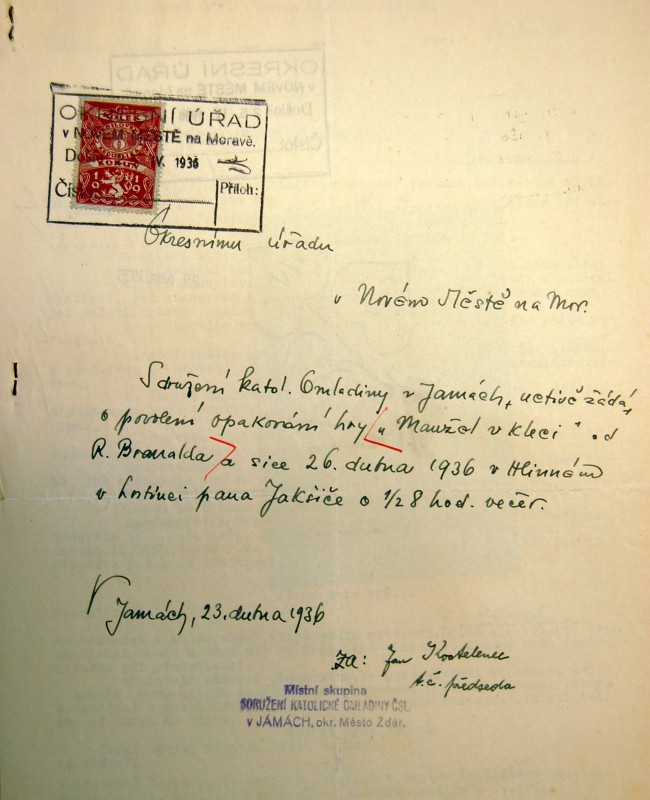 OKRESNÍ ÚŘAD
v NOVÉM MĚSTĚ na Moravě.
Došlo V. 1936
Čís Příloh:
Okresnímu úřadu
v Novém Městě na Mor.
Sdružení katol. Omladiny v Jamách, uctivě žádá
o povolení opakování hry „Manžel v kleci" od
R. Branalda a sice 26. dubna 1936 v Hlinném
v hostinci pana Jakšiče o 1/2 8 hod. večer.
V Jamách, 23. dubna 1936
za: Jan Kostelenec
t.č. předseda
Místní skupina
SDRUŽENÍ KATOLICKÉ OMLADINY ČSL.
v JÁMÁCH, okr. Město Žďár.